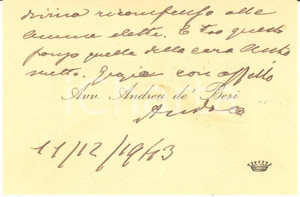 divina ricompensa alle
anime elette. E tra queste
pongo quella della cara Anto
nietta. Grazie con affetto
Avv. Andrea de' Besi
Andrea
11/12/1943